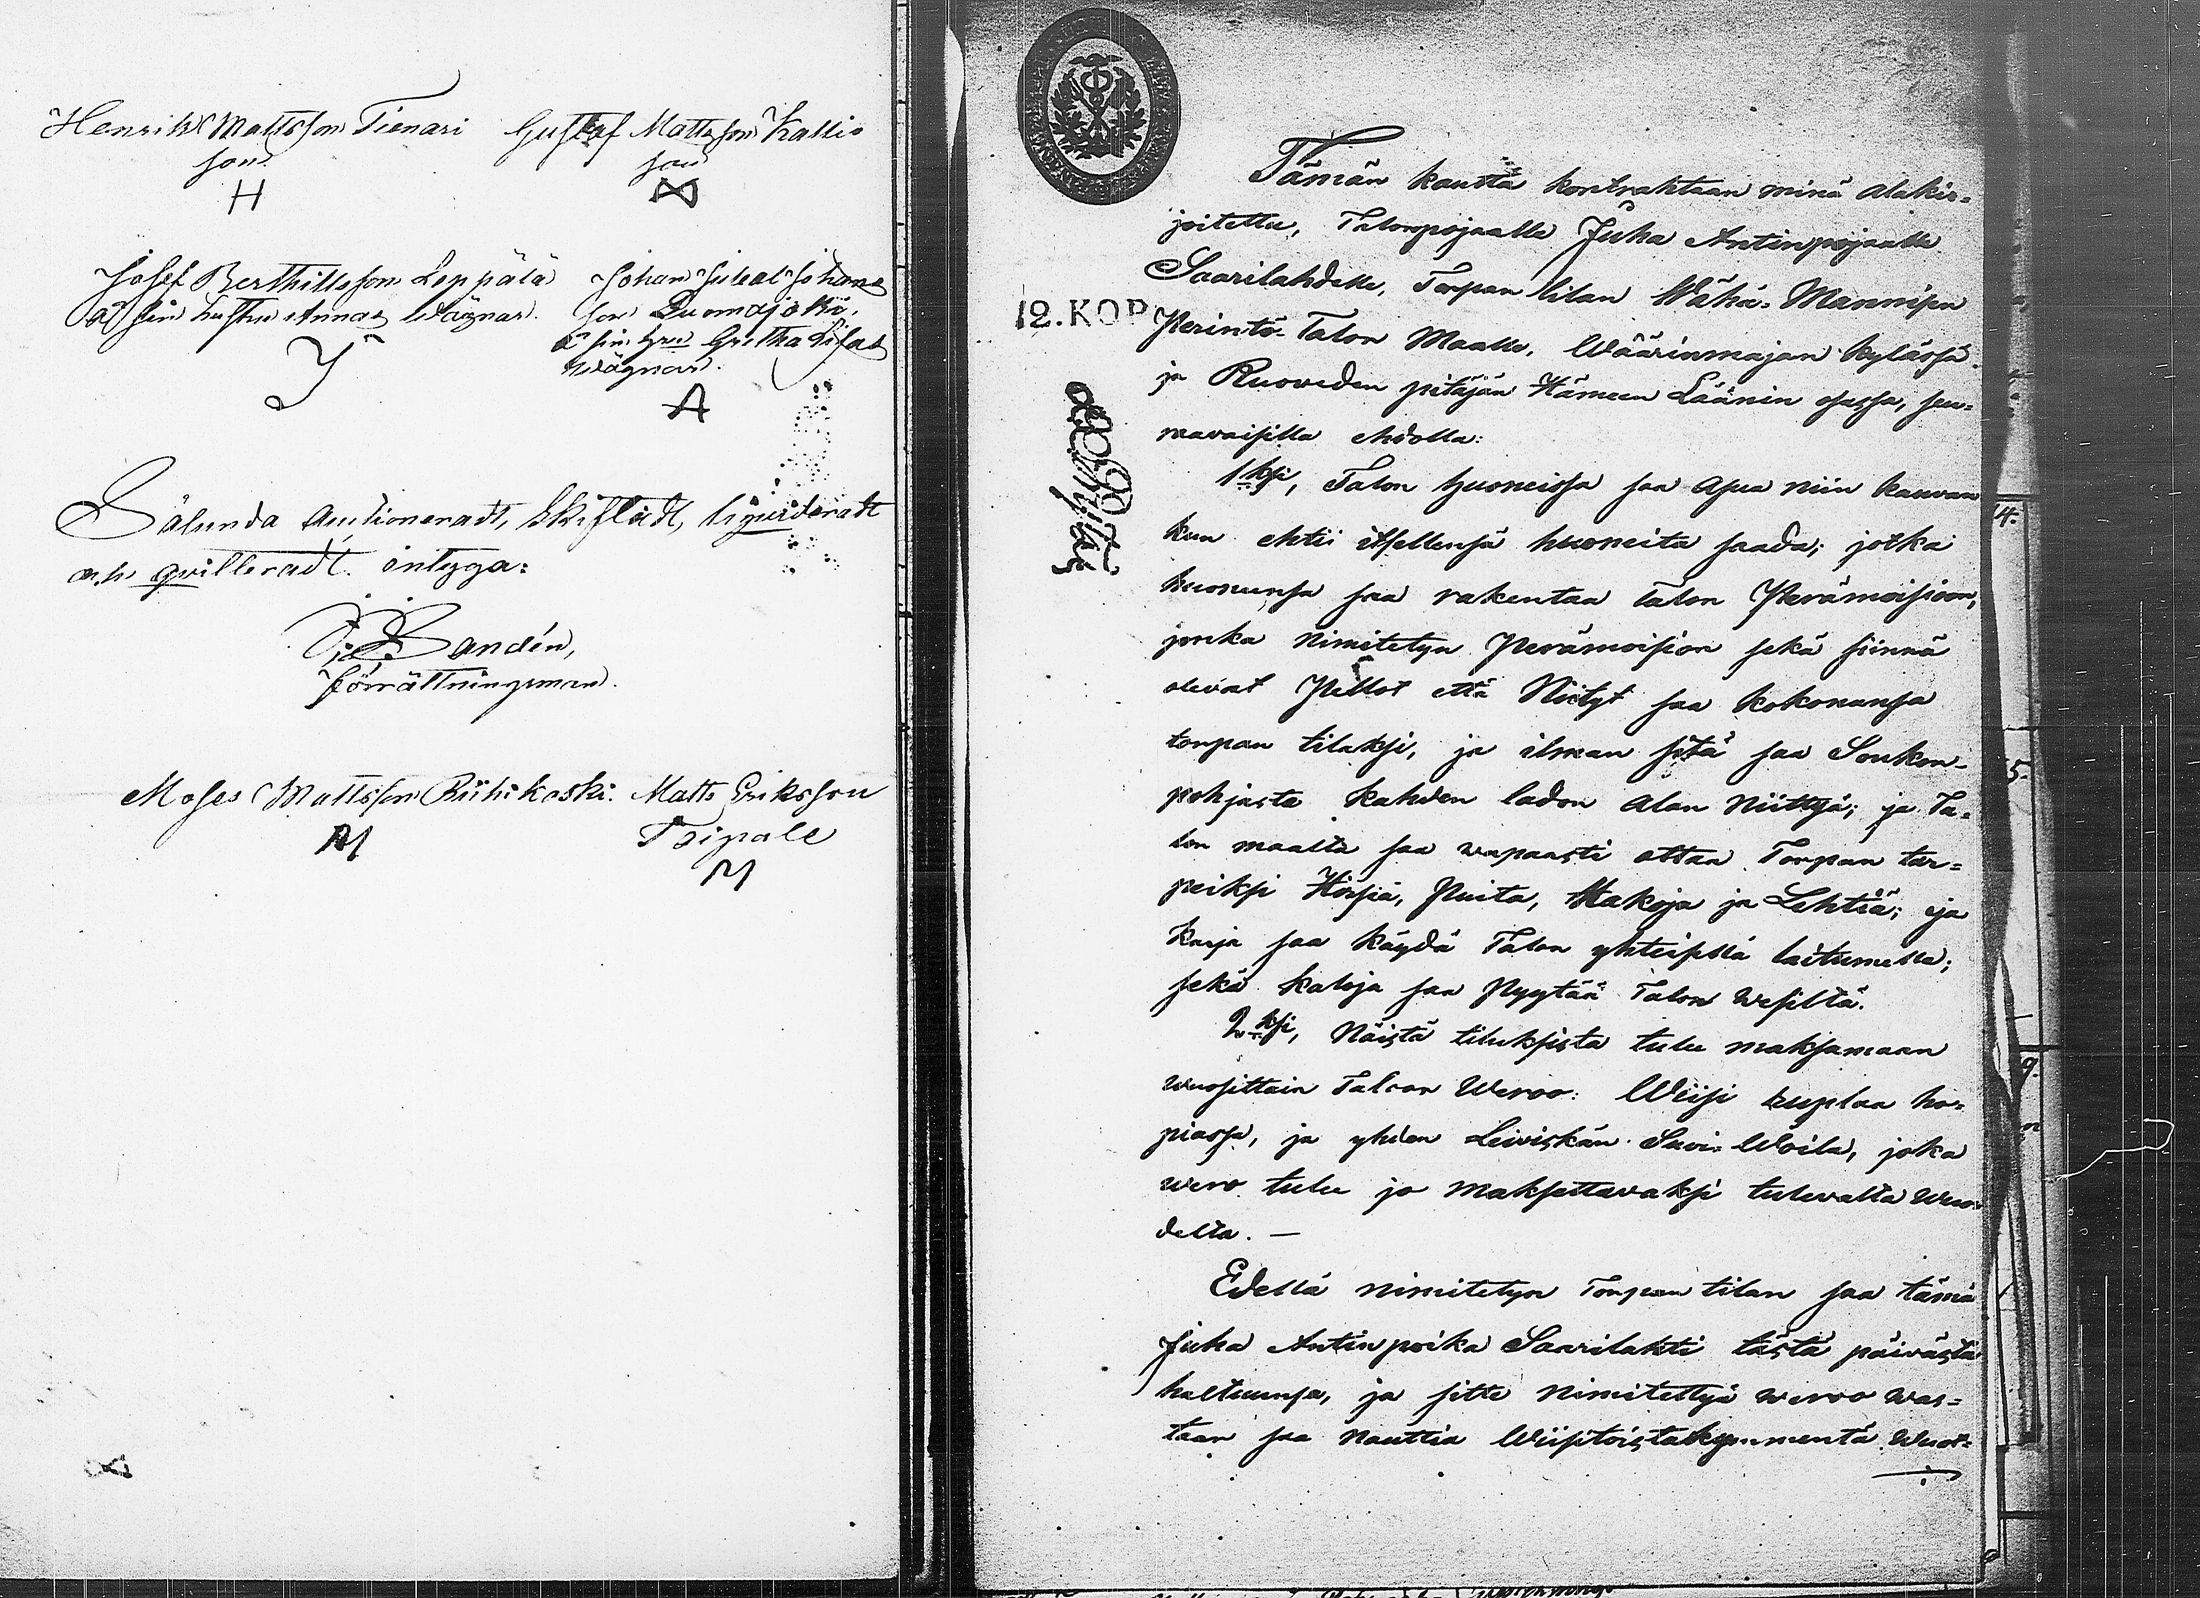 Henrik Mattsson Tienari
son
H
Gustaf Mattsson Kallio
son
Josef Berthillsson Leppälä
å sin hustru Annas wägnar.
Johan Johans
son Duomajoki,
å sin hru Gretha Lisas
wägnar.
A
Sålunda auctioneradt, skiftadt, liqvideradt
och qvitteradt, intyga:
Sandén,
förrättningsman.
Moses Mattsson Riihikoski.
M
Matts Eriksson
Toipale
M
12.KOP
Tämän kautta kontrahtaan minä alakir=
joitettu, Talonpojaalle Juha Antinpojaalle
Saarilahdelle, Torpan tilan Wähä=Mannisen
Perintö-Talon Maalle, Wäärinmajan kylässä
ja Ruoveden pitäjän Hämeen Läänin osassa, seu=
raavaisilla ehdolla:
1ksi, Talon huoneissa saa asua niin kauvan
kun ehtii itsellensä huoneita saada; jotka
huoneensa saa rakentaa talon Perämoisioon,
jonka nimitetyn Perämoision sekä siinnä
olevat Pellot että Niityt saa kokonansa
torpan tilaksi, ja ilman sitä saa Soukon=
pohjasta kahden ladon alan Niittyä; ja Ta=
lon maalta saa wapaasti ottaa Torpan tar=
peiksi Hirsiä, Puita, Hakoja ja Lehtiä; ja
karja saa käydä Talon yhteisellä laitumella;
sekä kaloja saa Pyytää Talon wesiltä.
2ksi, Näistä tiluksista tulee maksamaan
wuosittain Taloon Weroo: Wiisi ruplaa ho=
piassa, ja yhden Leiviskän Suvi=Woita, joka
wero tulee jo maksettavaksi tulevalta wuo=
delta. —
Edellä nimitetyn Torpan tilan saa tämä
Juha Antinpoika Saarilahti tästä päivästä
haltuunsa, ja sitte nimitettyä weroo was=
taan saa nauttia Wiisitoistakymmentä Wuot=